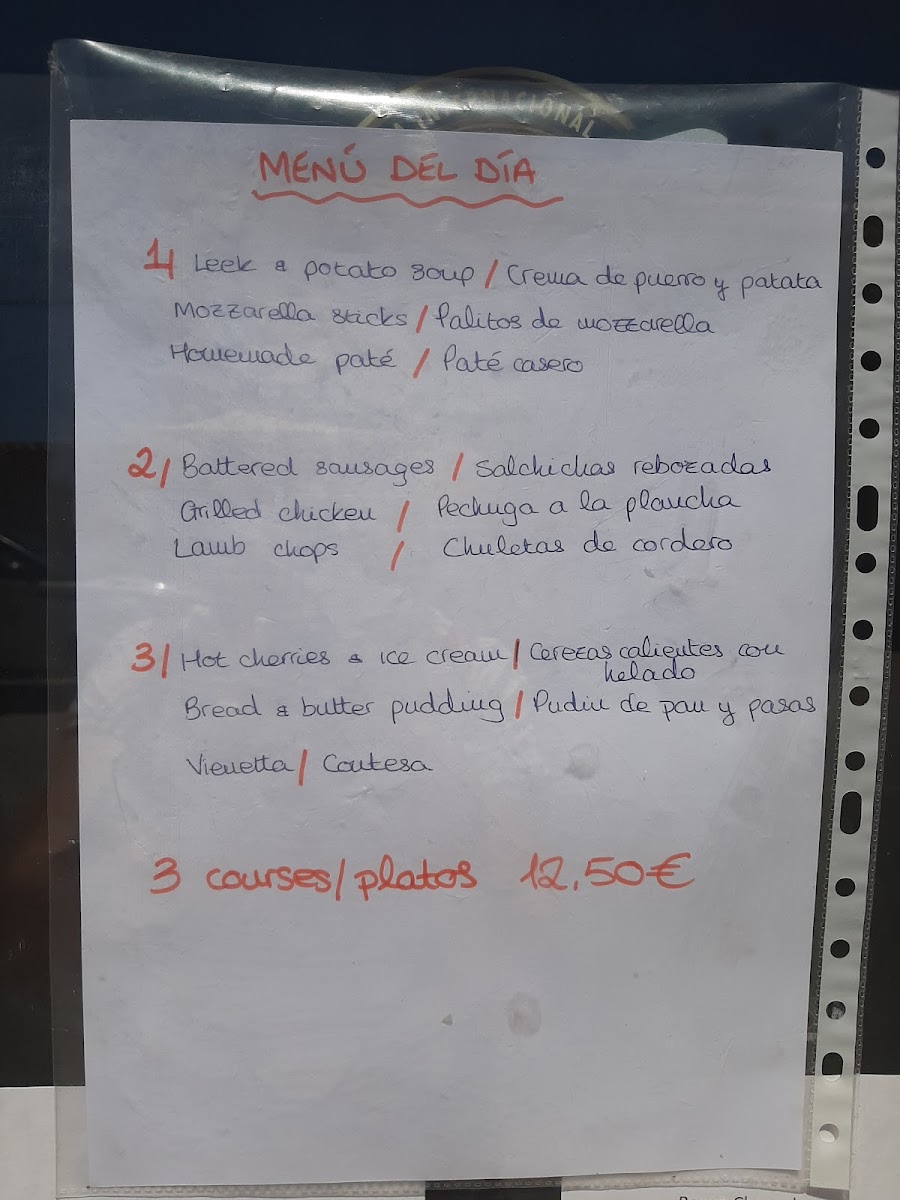 INTERNACIONAL
MENÚ DEL DÍA
1/ Leek & potato soup / Crema de puerro y patata
Mozzarella sticks / Palitos de mozzarella
Homemade paté / Paté casero
2/ Battered sausages / Salchichas rebozadas
Grilled chicken / Pechuga a la plancha
Lamb chops / Chuletas de cordero
3/ Hot cherries & ice cream / Cerezas calientes con
helado
Bread & butter pudding / Pudin de pan y pasas
Vienetta / Contesa
3 courses/platos 12,50€